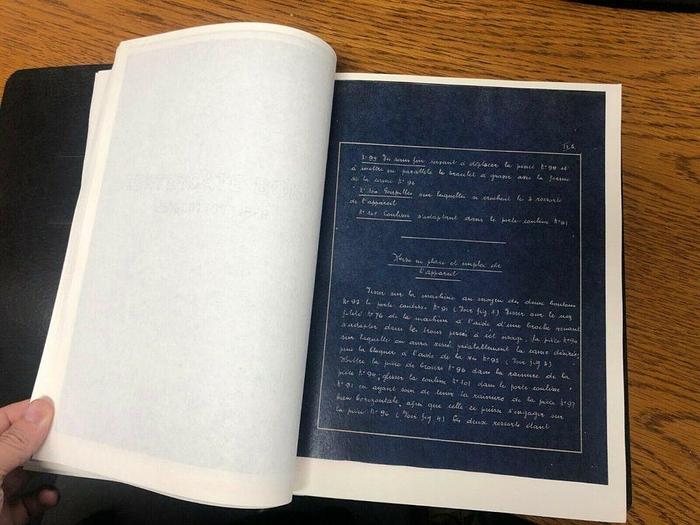 N° 99 Vis sans fin servant à déplacer la pièce N° 98 et
à mettre en parallèle le bracelet à graver avec la forme
de la came N° 96
N° 100 Goupilles sur laquelle s'accrochent les 2 ressorts
de l'appareil
N° 101 Coulisse s'adaptant dans le porte-coulisse N° 91
Mise en place et emploi de
l'appareil
Fixer sur la machine au moyen des deux boutons
N° 92 le porte-coulisse N° 91 (Voir fig. 4) Fixer sur le
N° 76 de la machine à l'aide d'une broche venant
s'adapter dans les trous percés à cet usage, la pièce N° 94
sur laquelle on aura vissé préalablement la came désirée,
puis la bloquer à l'aide de la vis N° 95 (Voir fig. 3)
Mettre la pièce de bronze N° 96 dans la rainure de la
pièce N° 94, glisser la coulisse N° 101 dans le porte-coulisse
N° 91 en ayant soin de tenir la rainure de la pièce N° 97
bien horizontale, afin que celle-ci puisse s'engager sur
la pièce N° 96 (Voir fig. 4) Les deux ressorts étant